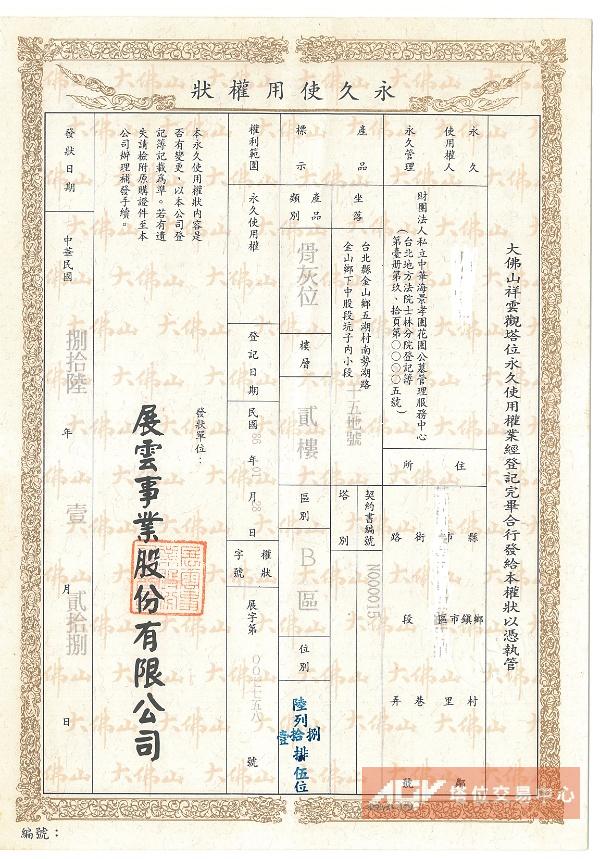 永久使用權狀
大佛山祥雲觀塔位永久使用權業經登記完畢合行發給本權狀以憑執管
永久使用權人
住所
縣市
鄉鎮市區
村里
鄰
路街
段
巷弄
號
永久管理
財團法人私立中華海景孝園花園公墓管理服務中心
(台北地方法院士林分院登記簿
第臺冊第玖、拾頁第〇〇〇〇五號)
產品標示
坐落
台北縣金山鄉五湖村南勢湖路
金山鄉下中股段坑子內小段
十五地號
契約書編號
N000015
塔別
產品類別
骨灰位
樓層
貳樓
區別
B區
位別
陸列捌拾壹排伍位
權利範圍
永久使用權
登記日期
民國86年01月28日
權狀字號
展字第
號
本永久使用權狀內容是
否有變更，以本公司登
記簿記載為準。若有遺
失請檢附原購證件至本
公司辦理補發手續。
發狀單位：
展雲事業股份有限公司
發狀日期
中華民國捌拾陸年壹月貳拾捌日
編號：
塔位交易中心